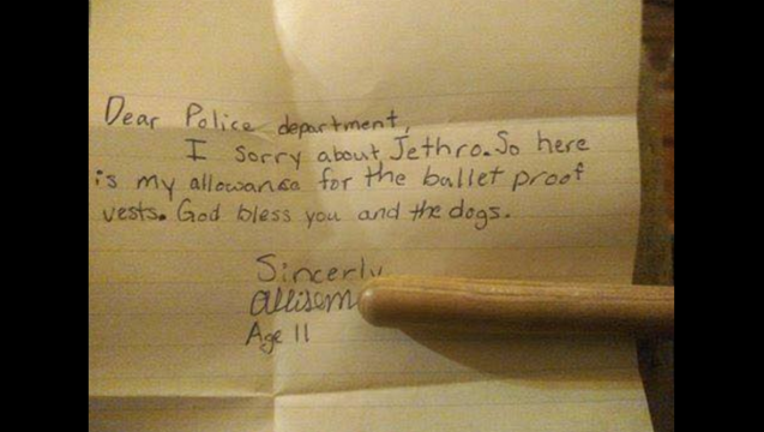 Dear Police department,
I sorry about Jethro. So here
is my allowanse for the bullet proof
vests. God bless you and the dogs.
Sincerly
Allison
Age 11